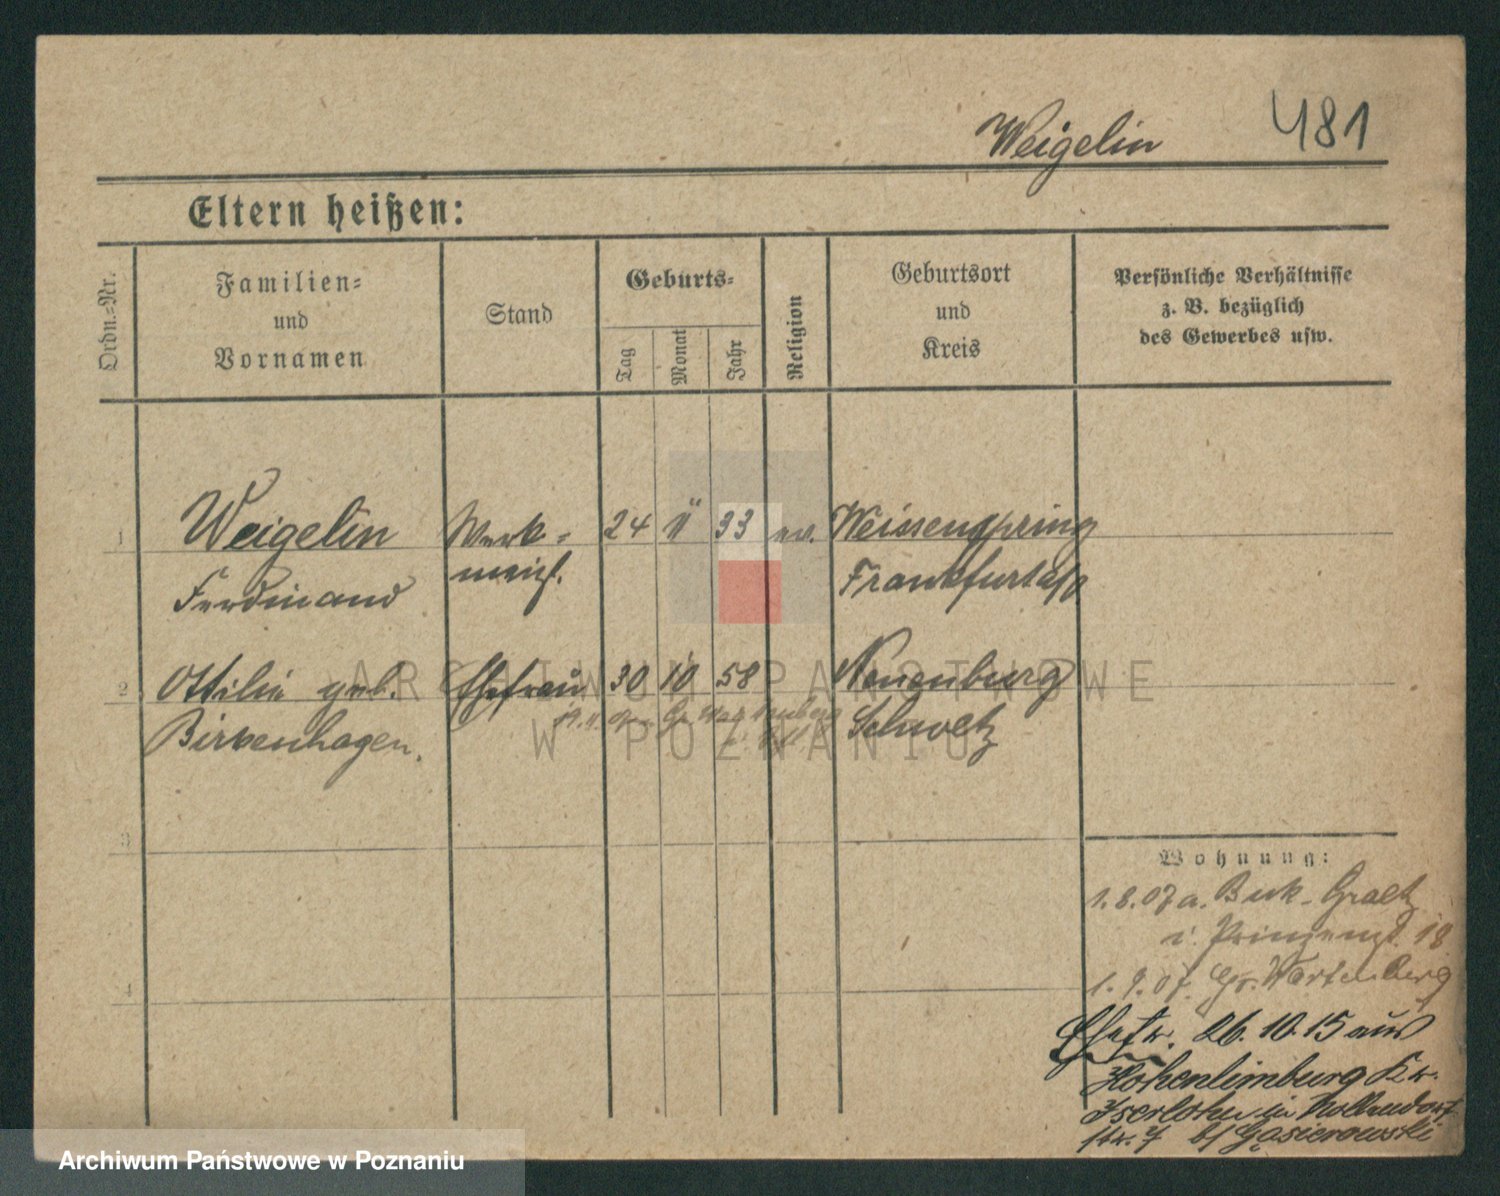 Weigelin 481
Eltern heißen:
Ordn.-Nr.
Familien-
und
Vornamen
Stand
Geburts-
Tag
Monat
Jahr
Religion
Geburtsort
und
Kreis
Persönliche Verhältnisse
z. B. bezüglich
des Gewerbes usw.
1 Weigelin Werk- 24 11 33 ev. Weissenspring
Ferdinand meist. Frankfurt a/o
2 Ottilie geb. Ehefrau 30 10 58 Neuenburg
Birkenhagen. Schwetz
3
4
Wohnung:
1.8.07 a. Buk-Graetz
i. Prinzenst. 18
1.9.07. Gr. Wartenberg
Ehefr. 26.10.15 aus
Hohenlimburg Kr.
Iserlohn in Nollendorf
str. 7 b/ Gąsierowski
ARCHIWUM PAŃSTWOWE
W POZNANIU
Archiwum Państwowe w Poznaniu